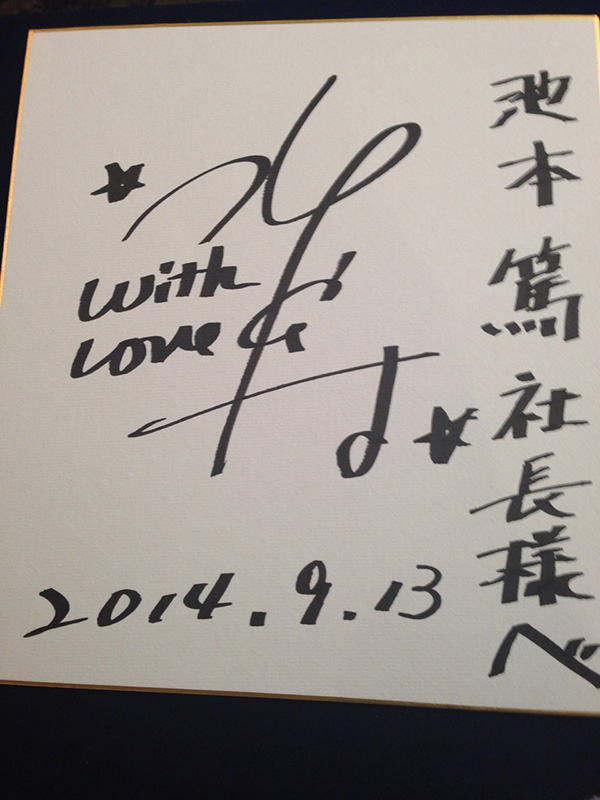 池本篤社長様へ
with
love
2014.9.13